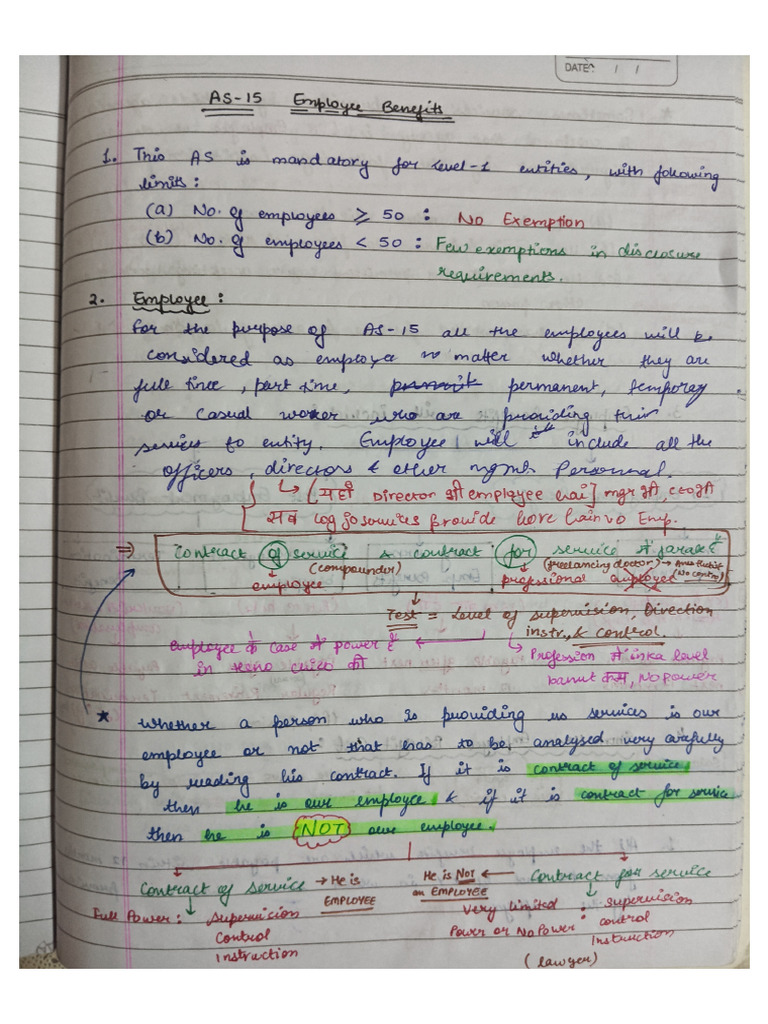 DATE: / /
AS-15 Employee Benefits
1. This AS is mandatory for Level-1 entities, with following
limits:
(a) No. of employees ≥ 50 : No Exemption
(b) No. of employees < 50 : Few exemptions in disclosure
requirements.
2. Employee:
For the purpose of AS-15 all the employees will be
considered as employee no matter whether they are
full time, part time, permanent, temporary
or casual worker who are providing their
services to entity. Employee will include all the
officers, directors & other mgmt Personnal.
(यहाँ Director भी employee hai) mgr भी,
सब log jo services provide kore hain vo Emp.
⇒ Contract of service & contract for service में farak है
(compounder) (freelancing doctor) →
employee professional employee (No control)
Test = Level of supervision, Direction
instr, & control.
employee के case में power है ←
in करनो की
→ Profession में inka level
bahut कम, No power
★ Whether a person who is providing us services is our
employee or not that has to be analysed very carefully
by reading his contract. If it is contract of service
then he is our employee & if it is contract for service
then he is NOT our employee.
Contract of service → He is EMPLOYEE
He is NOT an EMPLOYEE ← Contract for service
Full Power: Supervision
Control
Instruction
Very limited Power or No Power : supervision
control
Instruction
(lawyer)